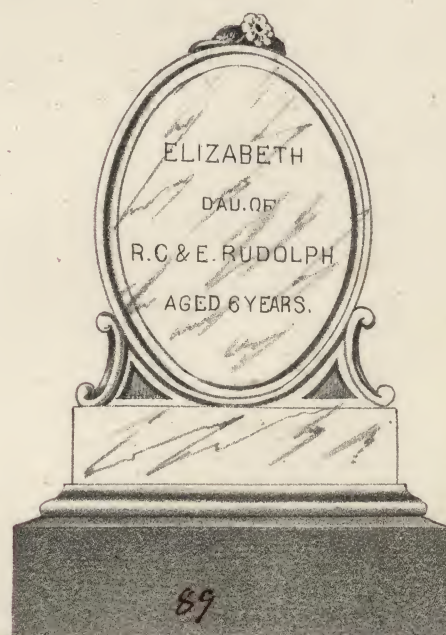 ELIZABETH
DAU. OF
R.C & E. RUDOLPH
AGED 6 YEARS.
89